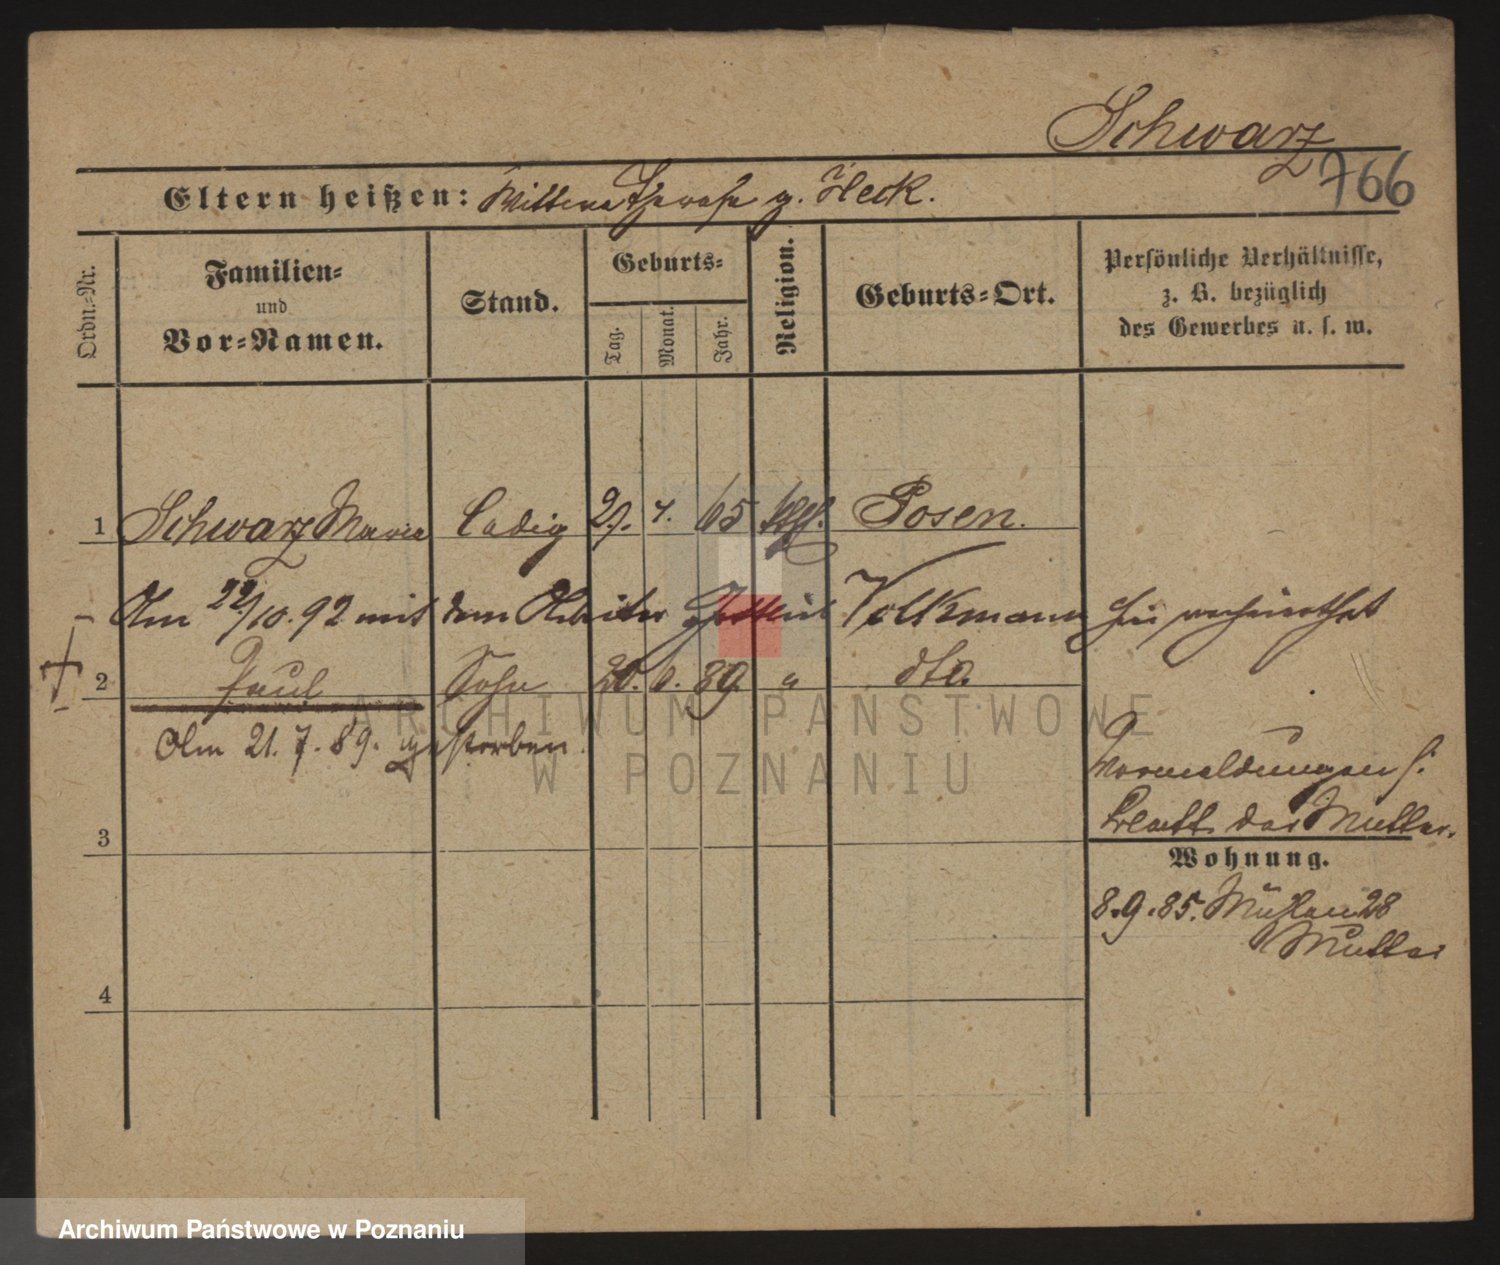 Schwarz
766
Eltern heißen: Wittwe Therese g. Heck.
Ordn.-Nr.
Familien- und Vor-Namen.
Stand.
Geburts-
Tag. Monat. Jahr.
Religion.
Geburts-Ort.
Persönliche Verhältnisse,
z. B. bezüglich
des Gewerbes u. s. w.
1 Schwarz Maria ledig 27. 7. 65 kth. Posen.
Am 22/10. 92 mit dem Arbeiter Volkmann hier verheirathet
2 Paul Sohn 20. 6. 89. " dto.
Am 21. 7. 89. gestorben.
Vormeldungen s.
Blatt der Mutter.
3
Wohnung.
8. 9. 85. Mühlen 28
Mutter
4
ARCHIWUM PAŃSTWOWE
W POZNANIU
Archiwum Państwowe w Poznaniu